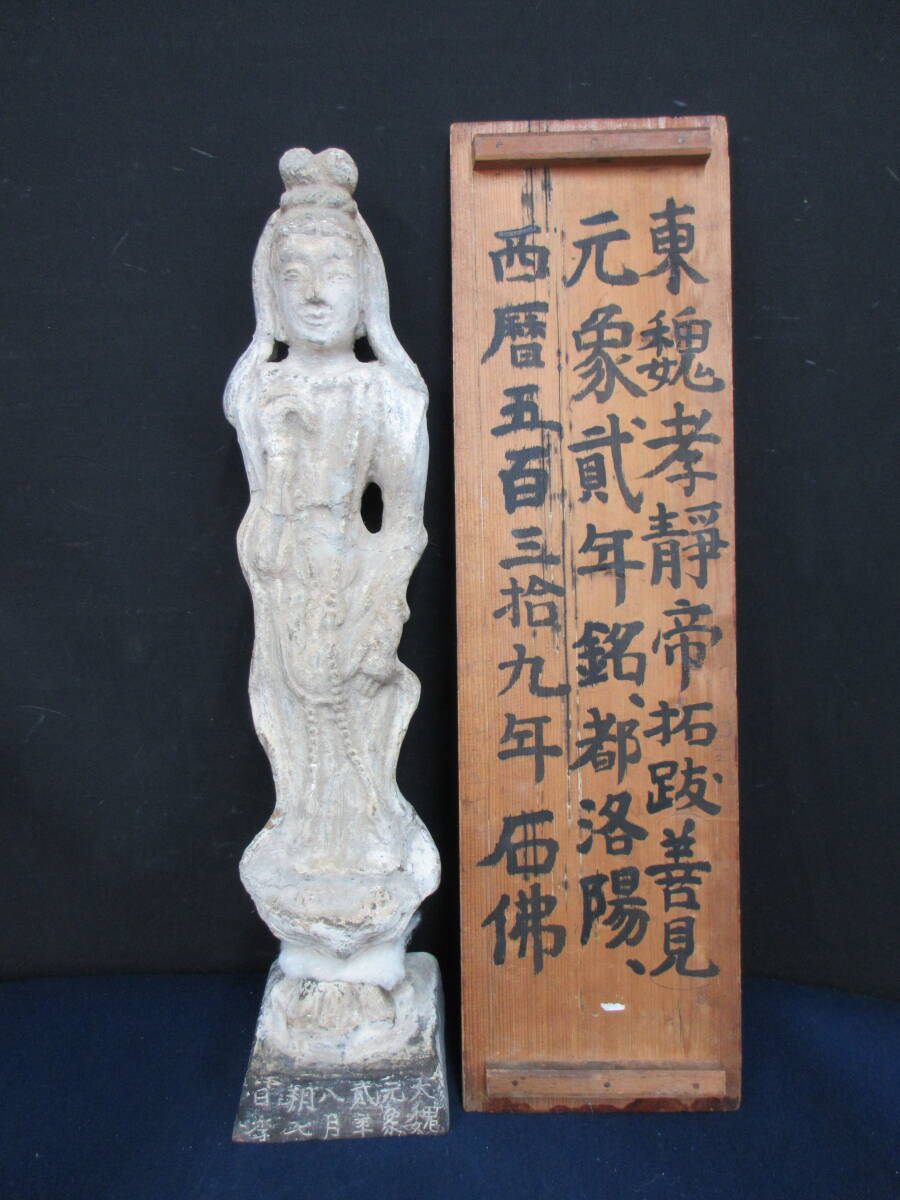 東魏孝靜帝拓跋善見
元象貳年銘、都洛陽、
西暦五百三拾九年 石佛
大魏
元象
貳年
八月